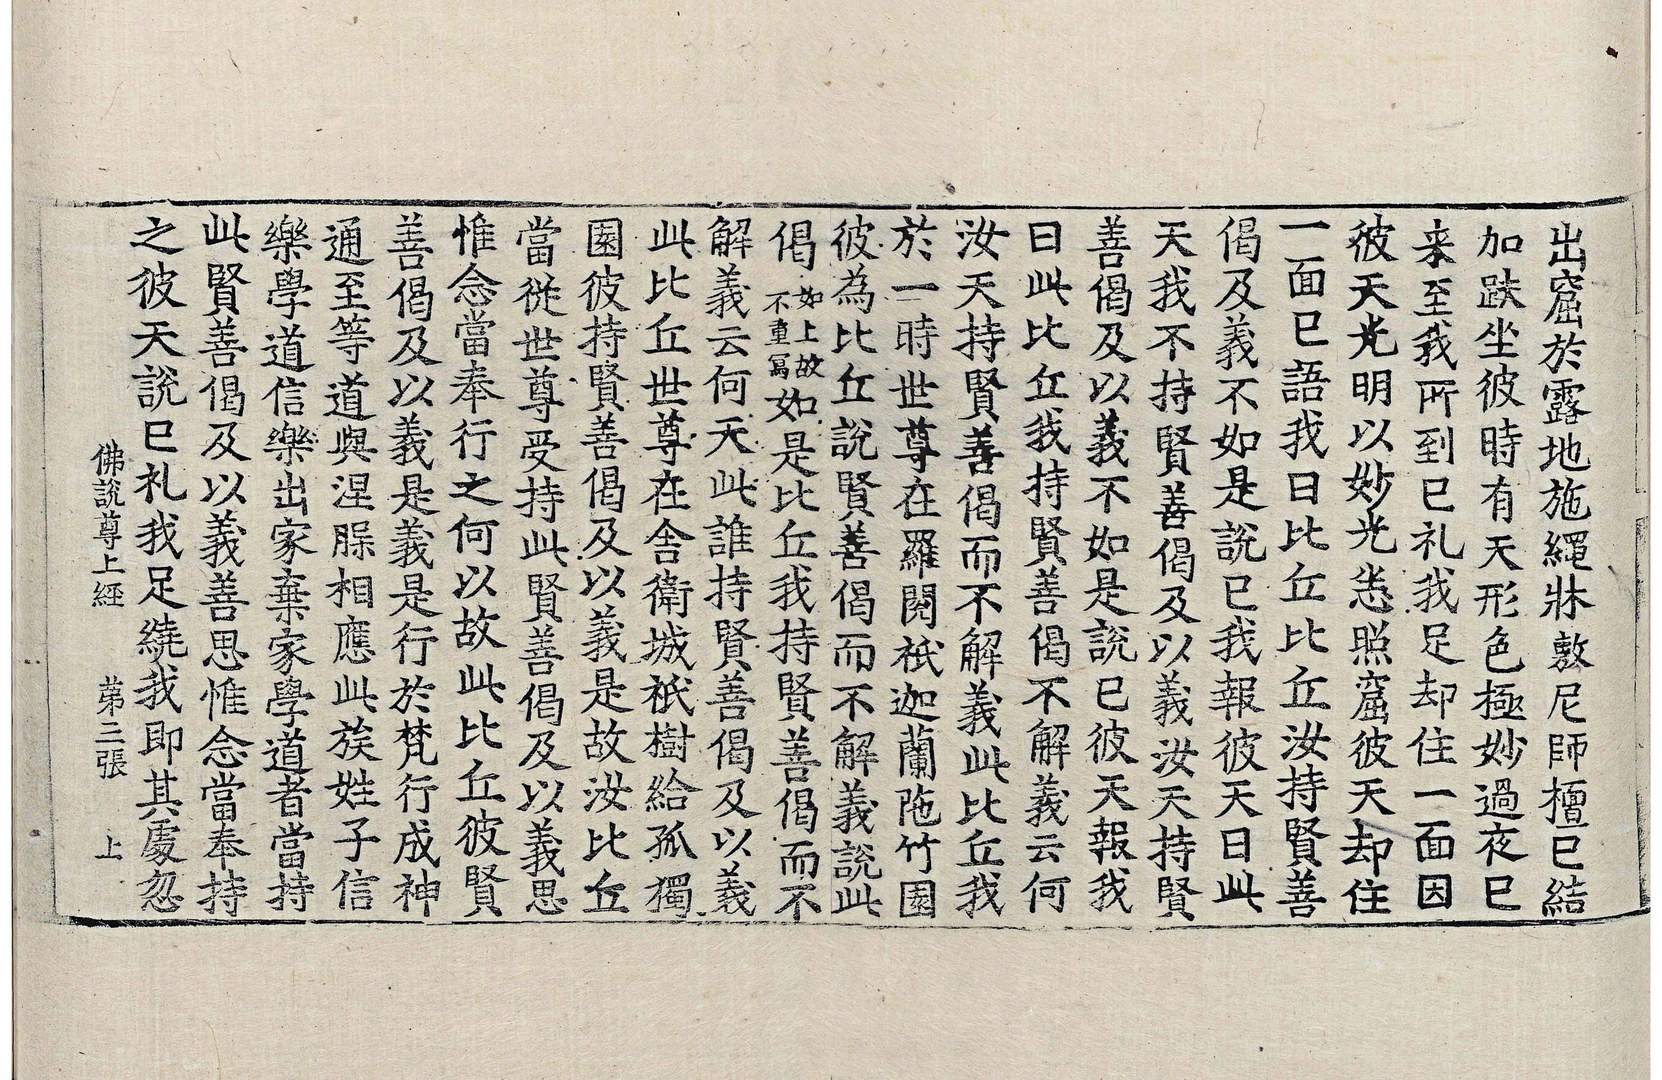 出窟於露地施繩牀敷尼師檀已結
加趺坐彼時有天形色極妙過夜已
来至我所到已礼我足却住一面因
彼天光明以妙光悉照窟彼天却住
一面已語我曰比丘比丘汝持賢善
偈及義不如是說已我報彼天曰此
天我不持賢善偈及以義汝天持賢
善偈及以義不如是說已彼天報我
曰此比丘我持賢善偈不解義云何
汝天持賢善偈而不解義此比丘我
於一時世尊在羅閱祇迦蘭陁竹園
彼為比丘說賢善偈而不解義說此
偈如上故不重寫如是比丘我持賢善偈而不
解義云何天此誰持賢善偈及以義
此比丘世尊在舍衛城祇樹給孤獨
園彼持賢善偈及以義是故汝比丘
當從世尊受持此賢善偈及以義思
惟念當奉行之何以故此比丘彼賢
善偈及以義是義是行於梵行成神
通至等道與涅槃相應此族姓子信
樂學道信樂出家棄家學道者當持
此賢善偈及以義善思惟念當奉持
之彼天說已礼我足繞我即其處忽
佛說尊上經 第三張 上